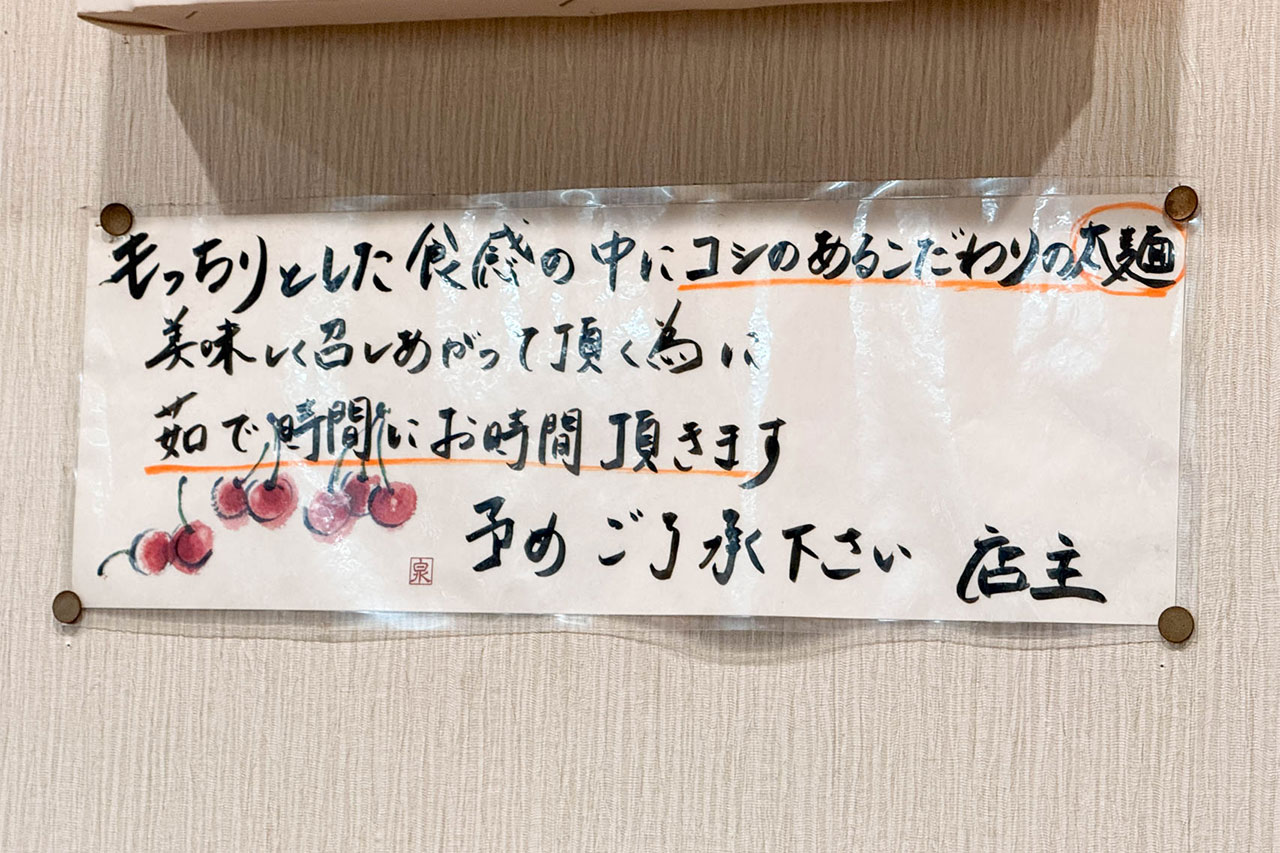 もっちりとした食感の中にコシのあるこだわりの太麺
美味しく召しあがって頂く為に
茹で時間にお時間頂きます
予めご了承下さい 店主
泉